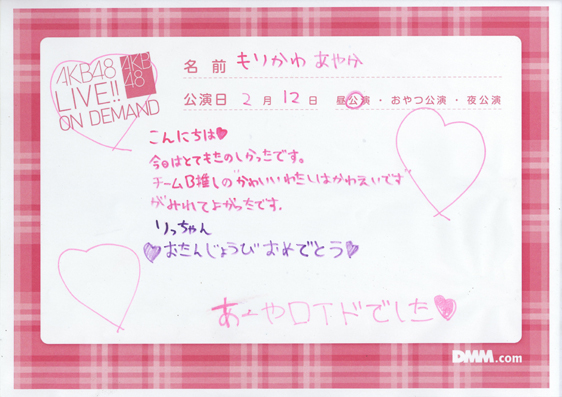 AKB48
LIVE!!
ON DEMAND
AKB
48
名前 もりかわ あやか
公演日 2月12日 昼公演・おやつ公演・夜公演
こんにちは♥
今日はとてもたのしかったです。
チームB推しの"かわいいわたしはかわえいです"
がみれてよかったです.
りっちゃん
♥おたんじょうび おめでとう♥
あーやロイドでした♥
DMM.com